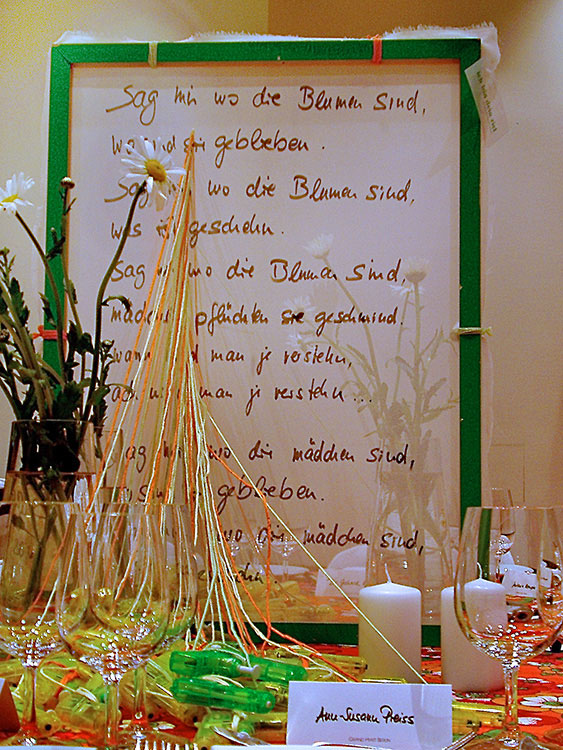 Sag mir wo die Blumen sind,
wo sind sie geblieben.
Sag mir wo die Blumen sind,
was ist geschehn.
Sag mir wo die Blumen sind,
mädchen pflückten sie geschwind.
wann wird man je verstehn,
ach wird man je verstehn...
Sag mir wo die mädchen sind,
wo sind sie geblieben.
wo die mädchen sind,
Ann-Susann Preiss